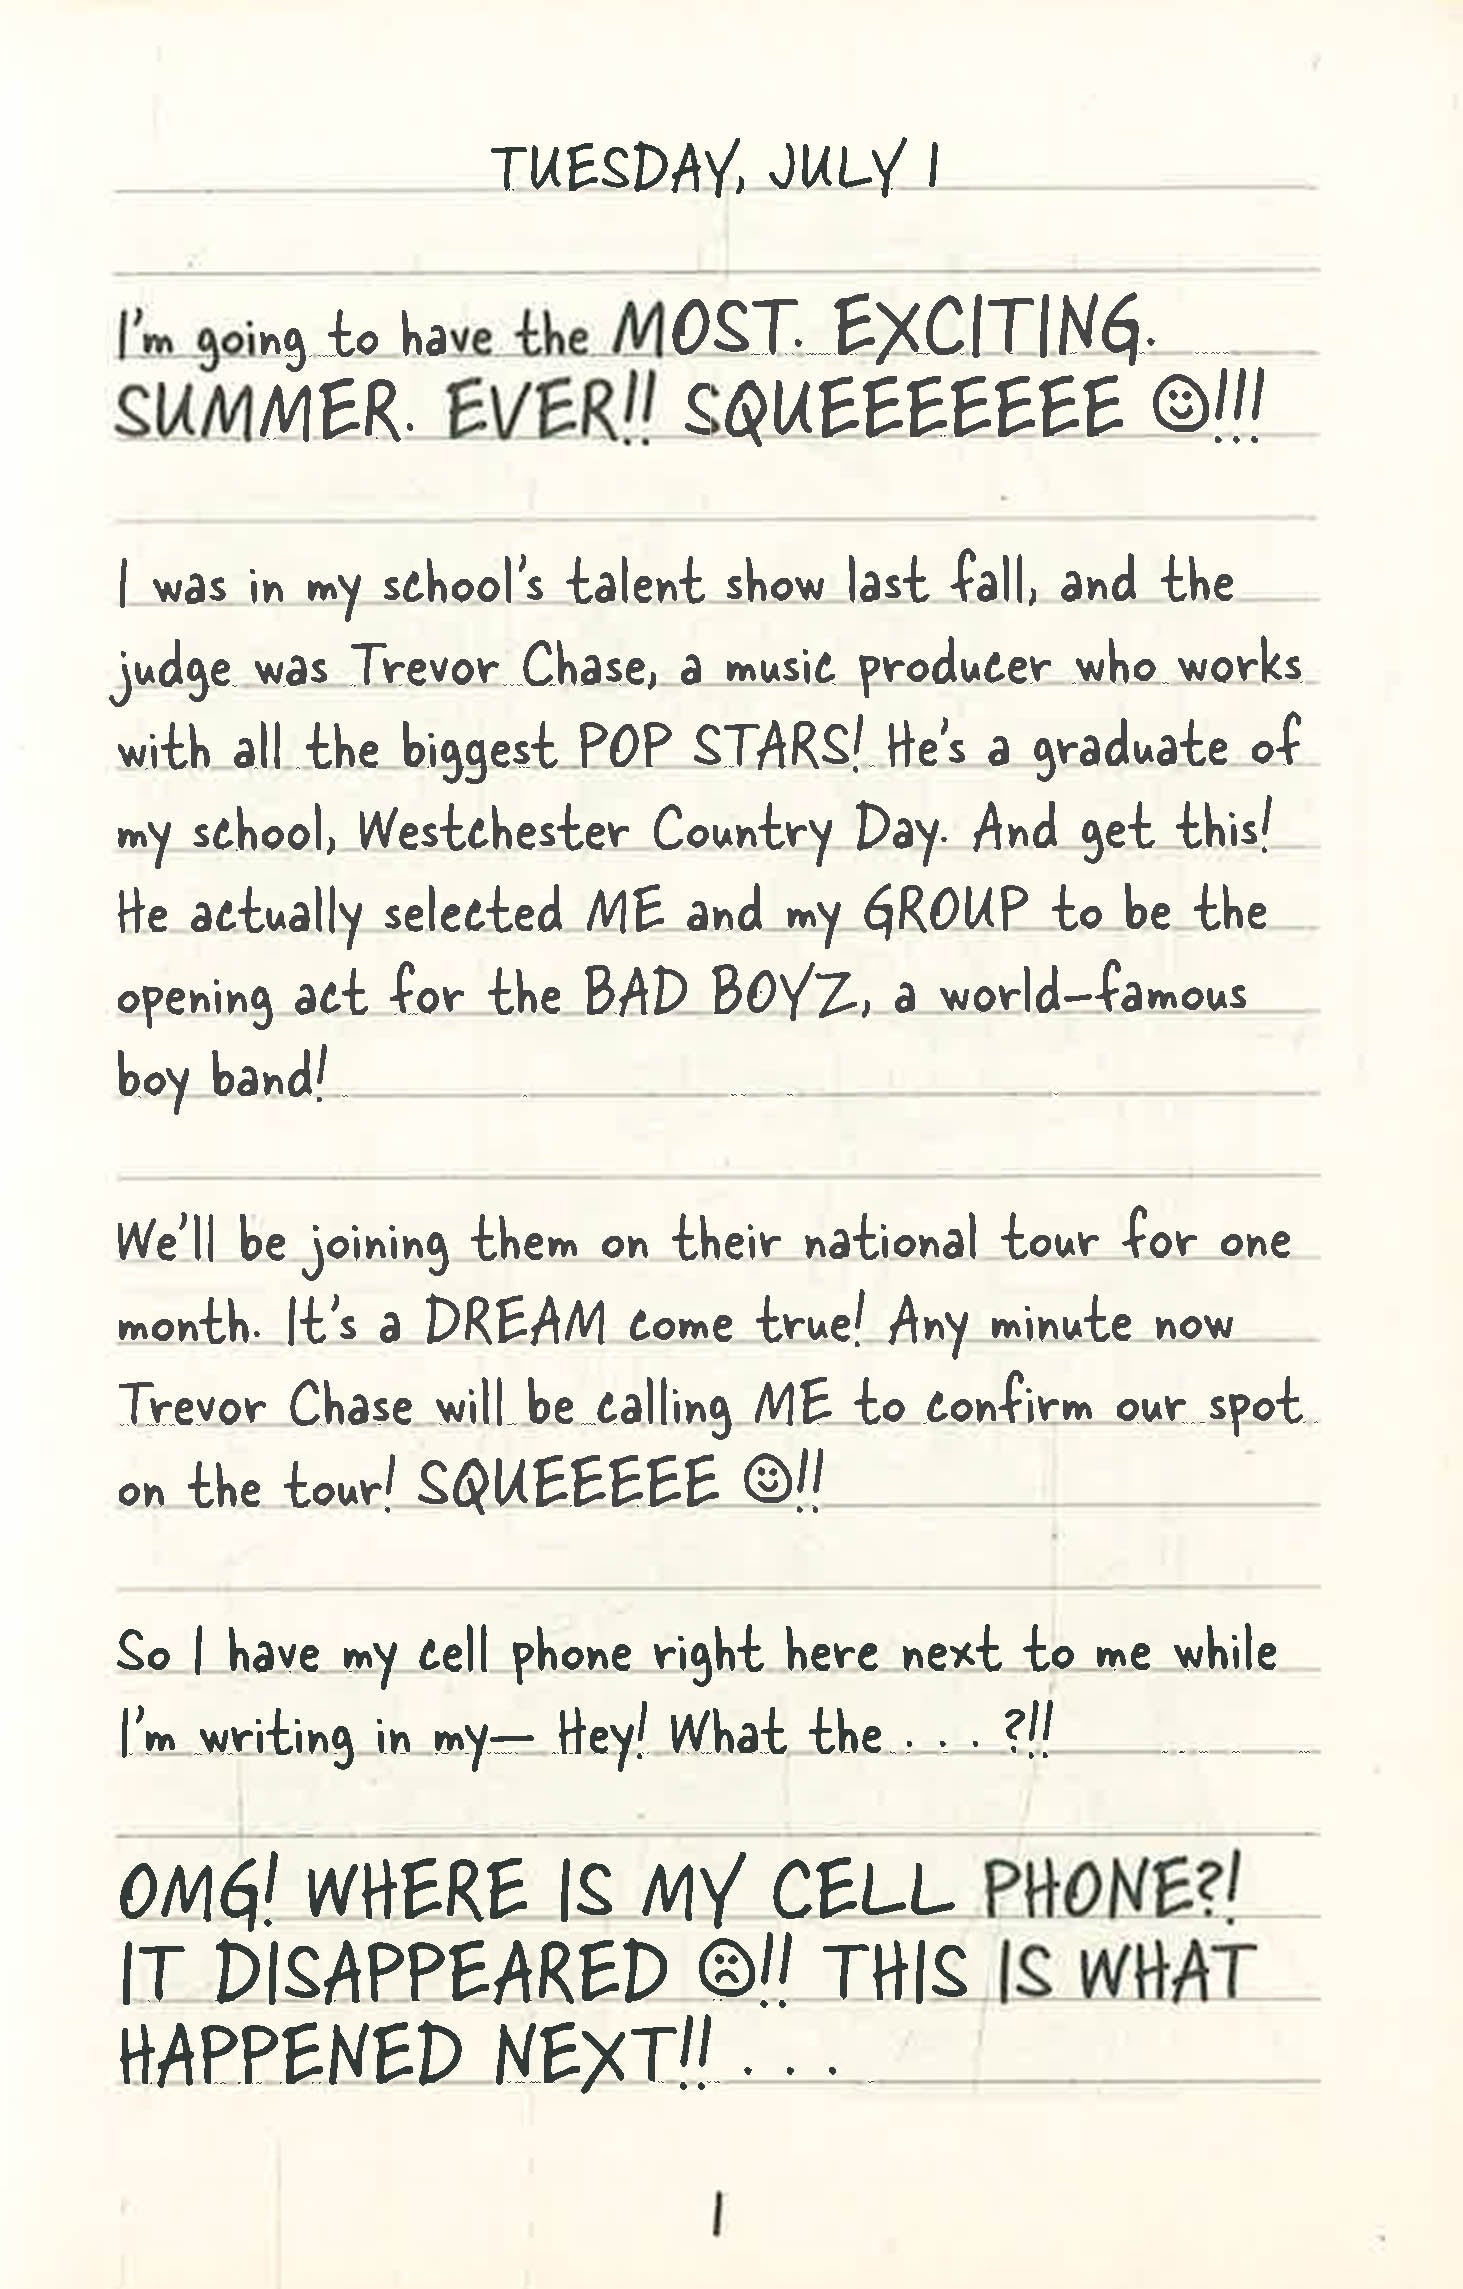 TUESDAY, JULY 1
I'm going to have the MOST. EXCITING.
SUMMER. EVER!! SQUEEEEEEEE ☺!!!
I was in my school's talent show last fall, and the
judge was Trevor Chase, a music producer who works
with all the biggest POP STARS! He's a graduate of
my school, Westchester Country Day. And get this!
He actually selected ME and my GROUP to be the
opening act for the BAD BOYZ, a world-famous
boy band!
We'll be joining them on their national tour for one
month. It's a DREAM come true! Any minute now
Trevor Chase will be calling ME to confirm our spot
on the tour! SQUEEEEE ☺!!
So I have my cell phone right here next to me while
I'm writing in my— Hey! What the . . . ?!!
OMG! WHERE IS MY CELL PHONE?!
IT DISAPPEARED ☹!! THIS IS WHAT
HAPPENED NEXT!! . . .
1